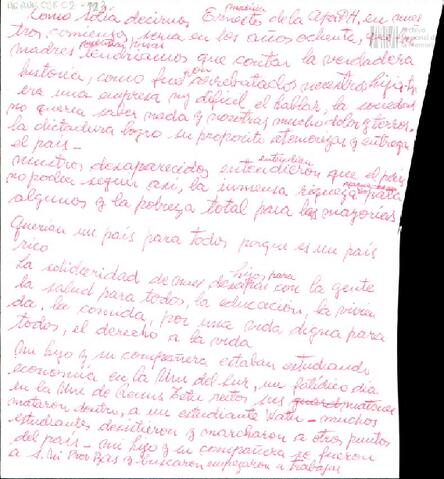 Como solía decirnos, Ernesto de la APDH, en nues
tros comienzos, sería en los años ochenta, que
madres tendríamos que contar la verdadera
historia, como fueron arrebatados nuestros hijos,
era una empresa muy difícil el hablar, la sociedad
no quería saber nada y nosotras mucho dolor y terror.
la dictadura logro su propósito atemorizar y entregar
el país -
nuestros desaparecidos entendieron que el país
no podía seguir así, la inmensa riqueza para
algunos y la pobreza total para las mayorías
Querían un país para todos porque es un país
rico
La solidaridad de hijo, para con la gente
la salud para todos, la educación, la vivien
da, la comida, por una vida digna para
todos, el derecho a la vida
Mi hijo y su compañera estaban estudiando
economía en la Univ del Sur, un fatídico día
en la Univ de Remus Tetu rector, sus
mataron dentro, a un estudiante Watu - muchos
estudiantes decidieron y marcharon a otros puntos
del país - mi hijo y su compañera se fueron
a y buscaron empezaron a trabajar